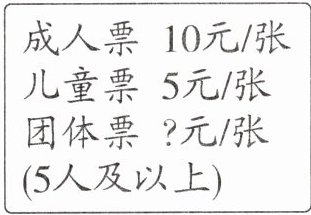 成人票 10元/张
儿童票 5元/张
团体票 ?元/张
(5人及以上)